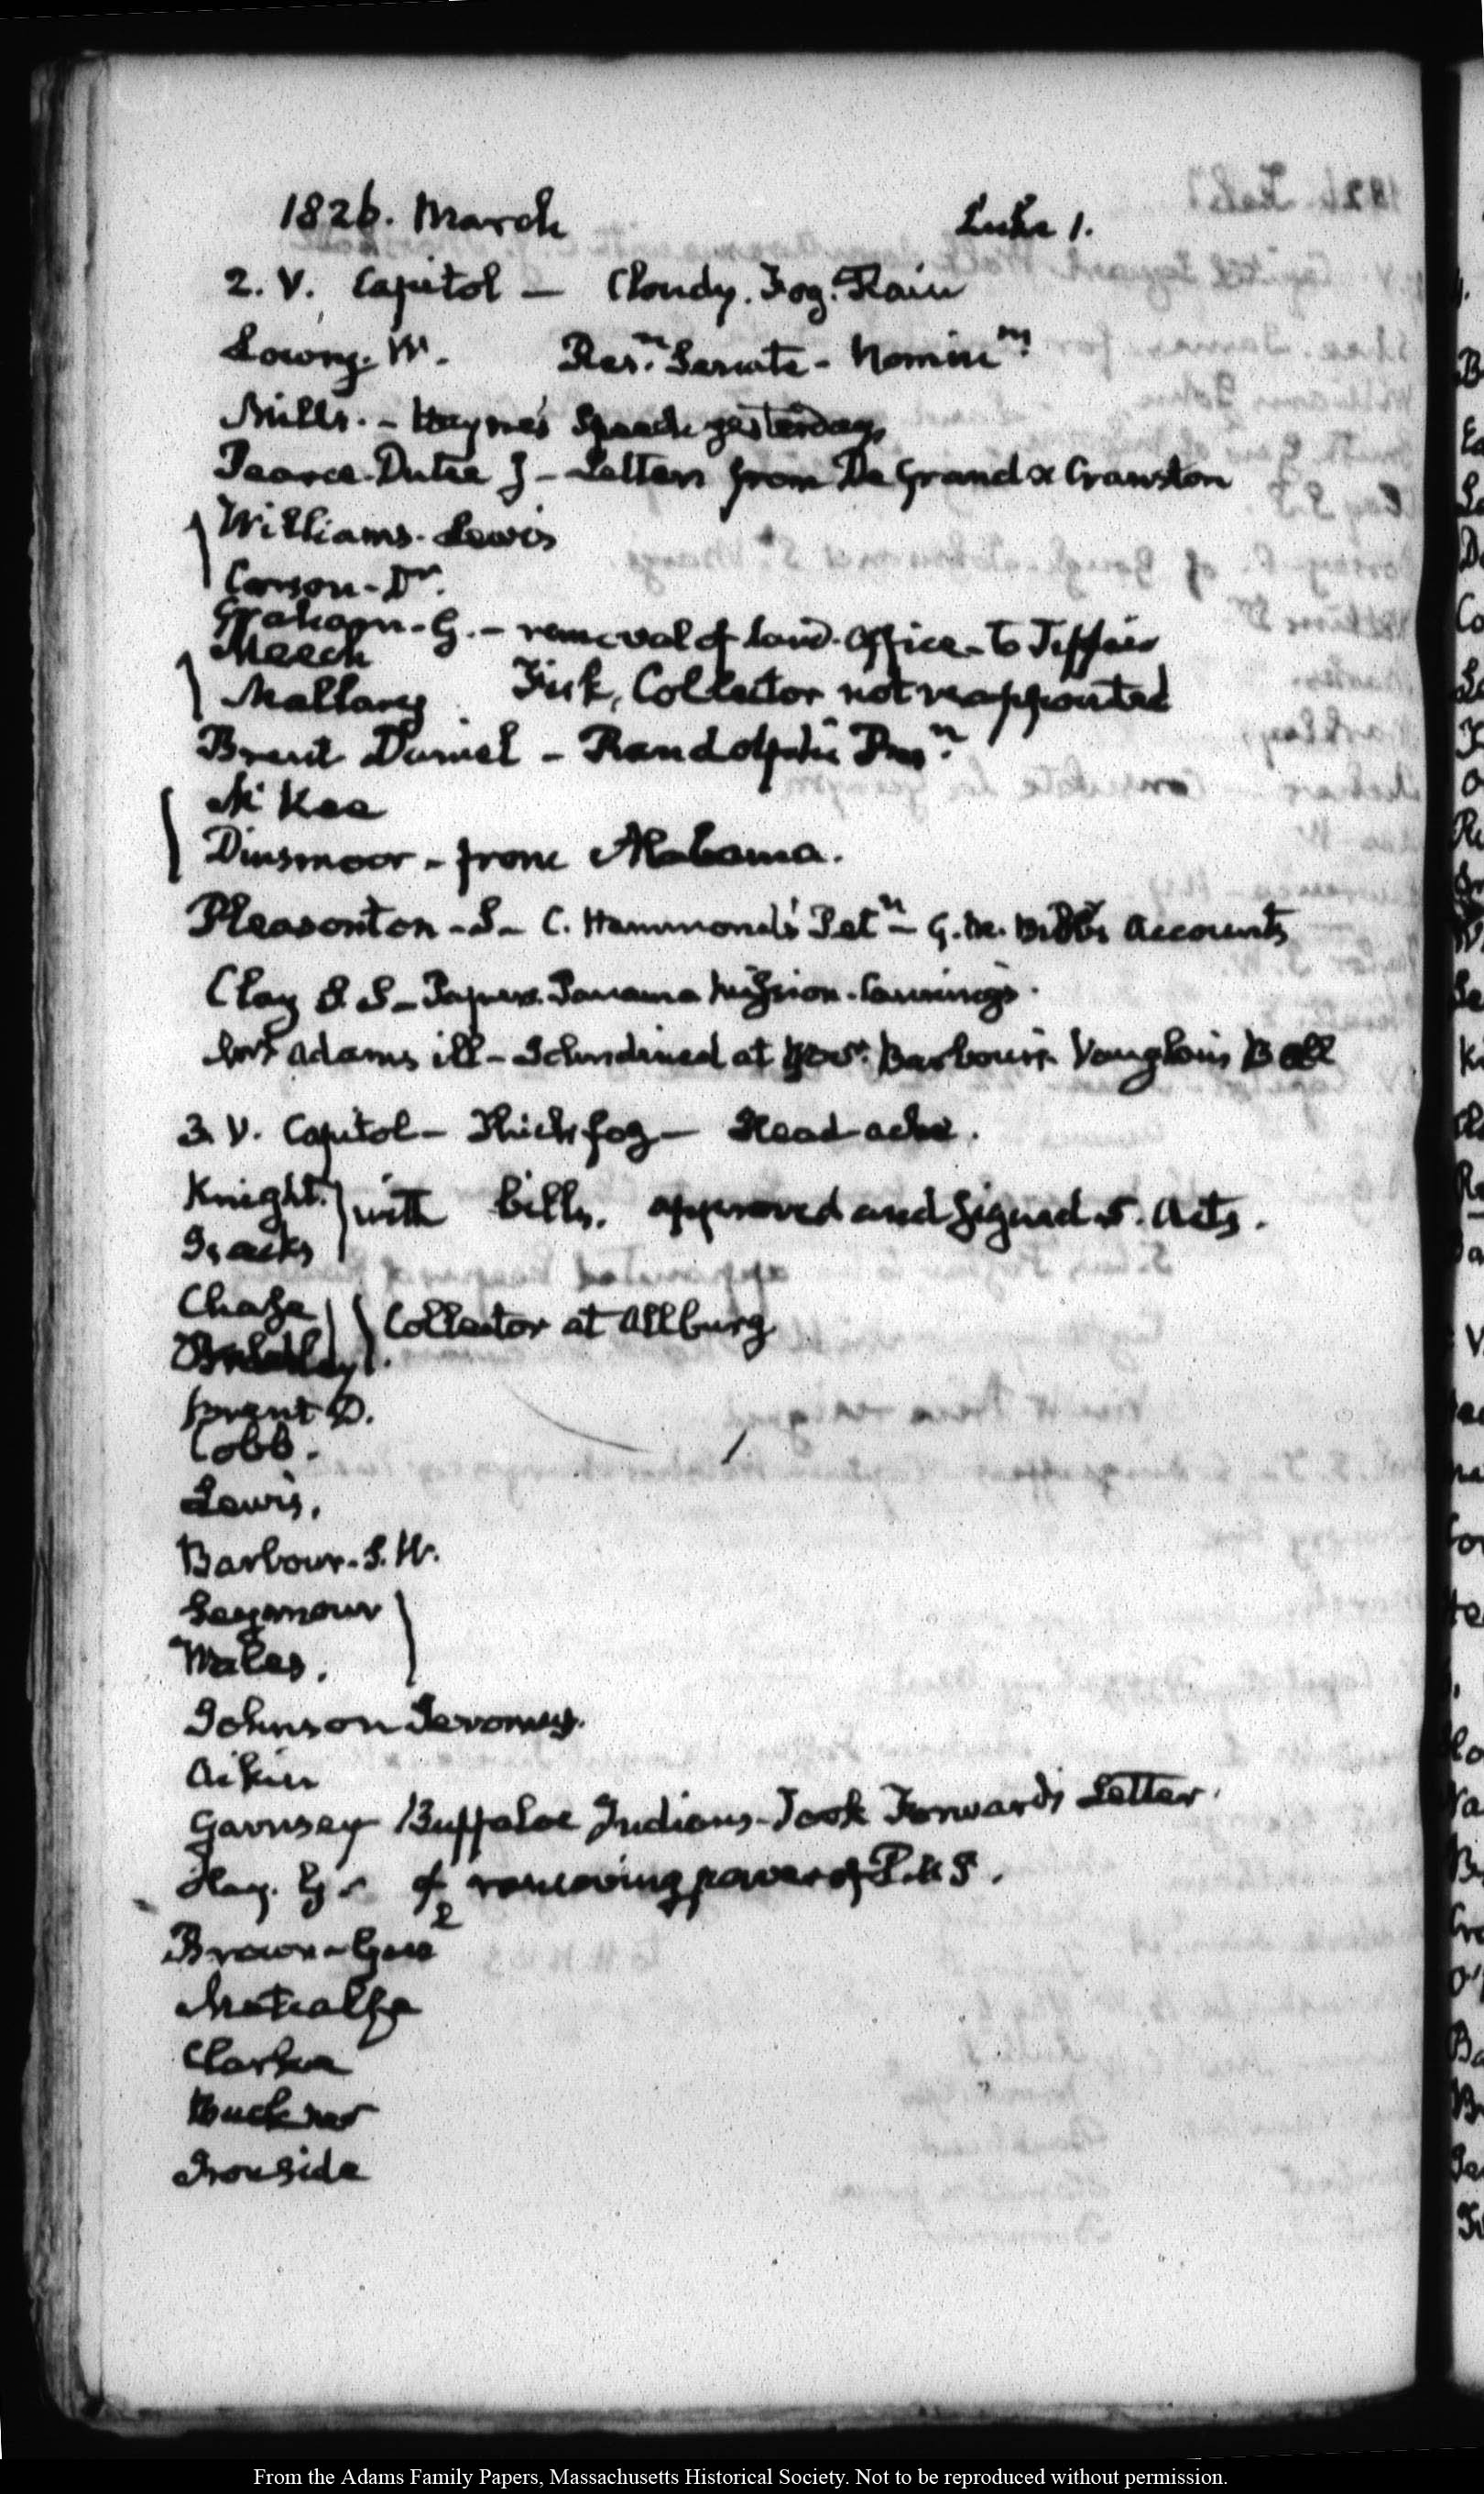 1826. March Luke 1.
2. V. Capitol – Cloudy. Fog. Rain
Lowry. W. Resns. Senate – Nominns
Mills. – Hayne's Speech yesterday
Pearce. Dutee J – Letters from De Grand & Cranston
Williams. Lewis
Carson – Dr.
Graham. G. – removal of land. Office – to Tiffin
Meech
Mallary Fisk, Collector not reappointed
Brent Daniel – Randolph's
McKee
Dinsmoor – from Alabama.
Pleasonton – S – C. Hammond's Petn – G. M. Bibb's Accounts
Clay S. S – Papers. Panama Mission. Canning's.
Mrs Adams ill – dined at Govr. Barbour's Vaughan's Ball
3. V. Capitol – Thick fog – Head-ache.
Knight. with bills. approved and signed 5. Acts.
Isacks
Chase Collector at Allburg
Brent D.
Cobb.
Lewis.
Barbour. S. W.
Seymour
Wales.
Johnson Jeromus.
Aikin
Garnsey Buffaloe Indians – Took Forward's Letter.
Hay. G. of removing power of P. U S.
Brown – Genl
Metcalfe
Clarke
Buckner
Ironside
From the Adams Family Papers, Massachusetts Historical Society. Not to be reproduced without permission.